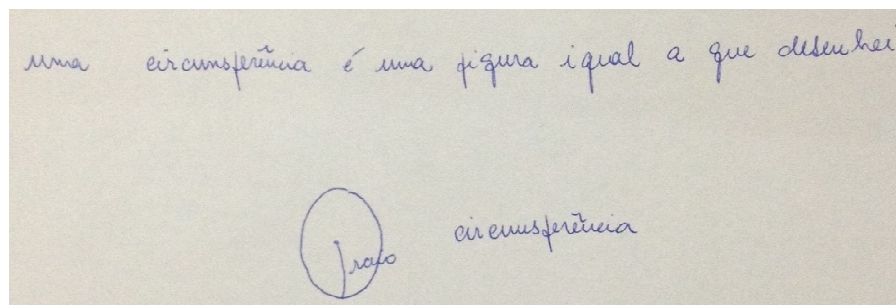 uma circunsferência é uma figura igual a que desenhei
raio circunsferência